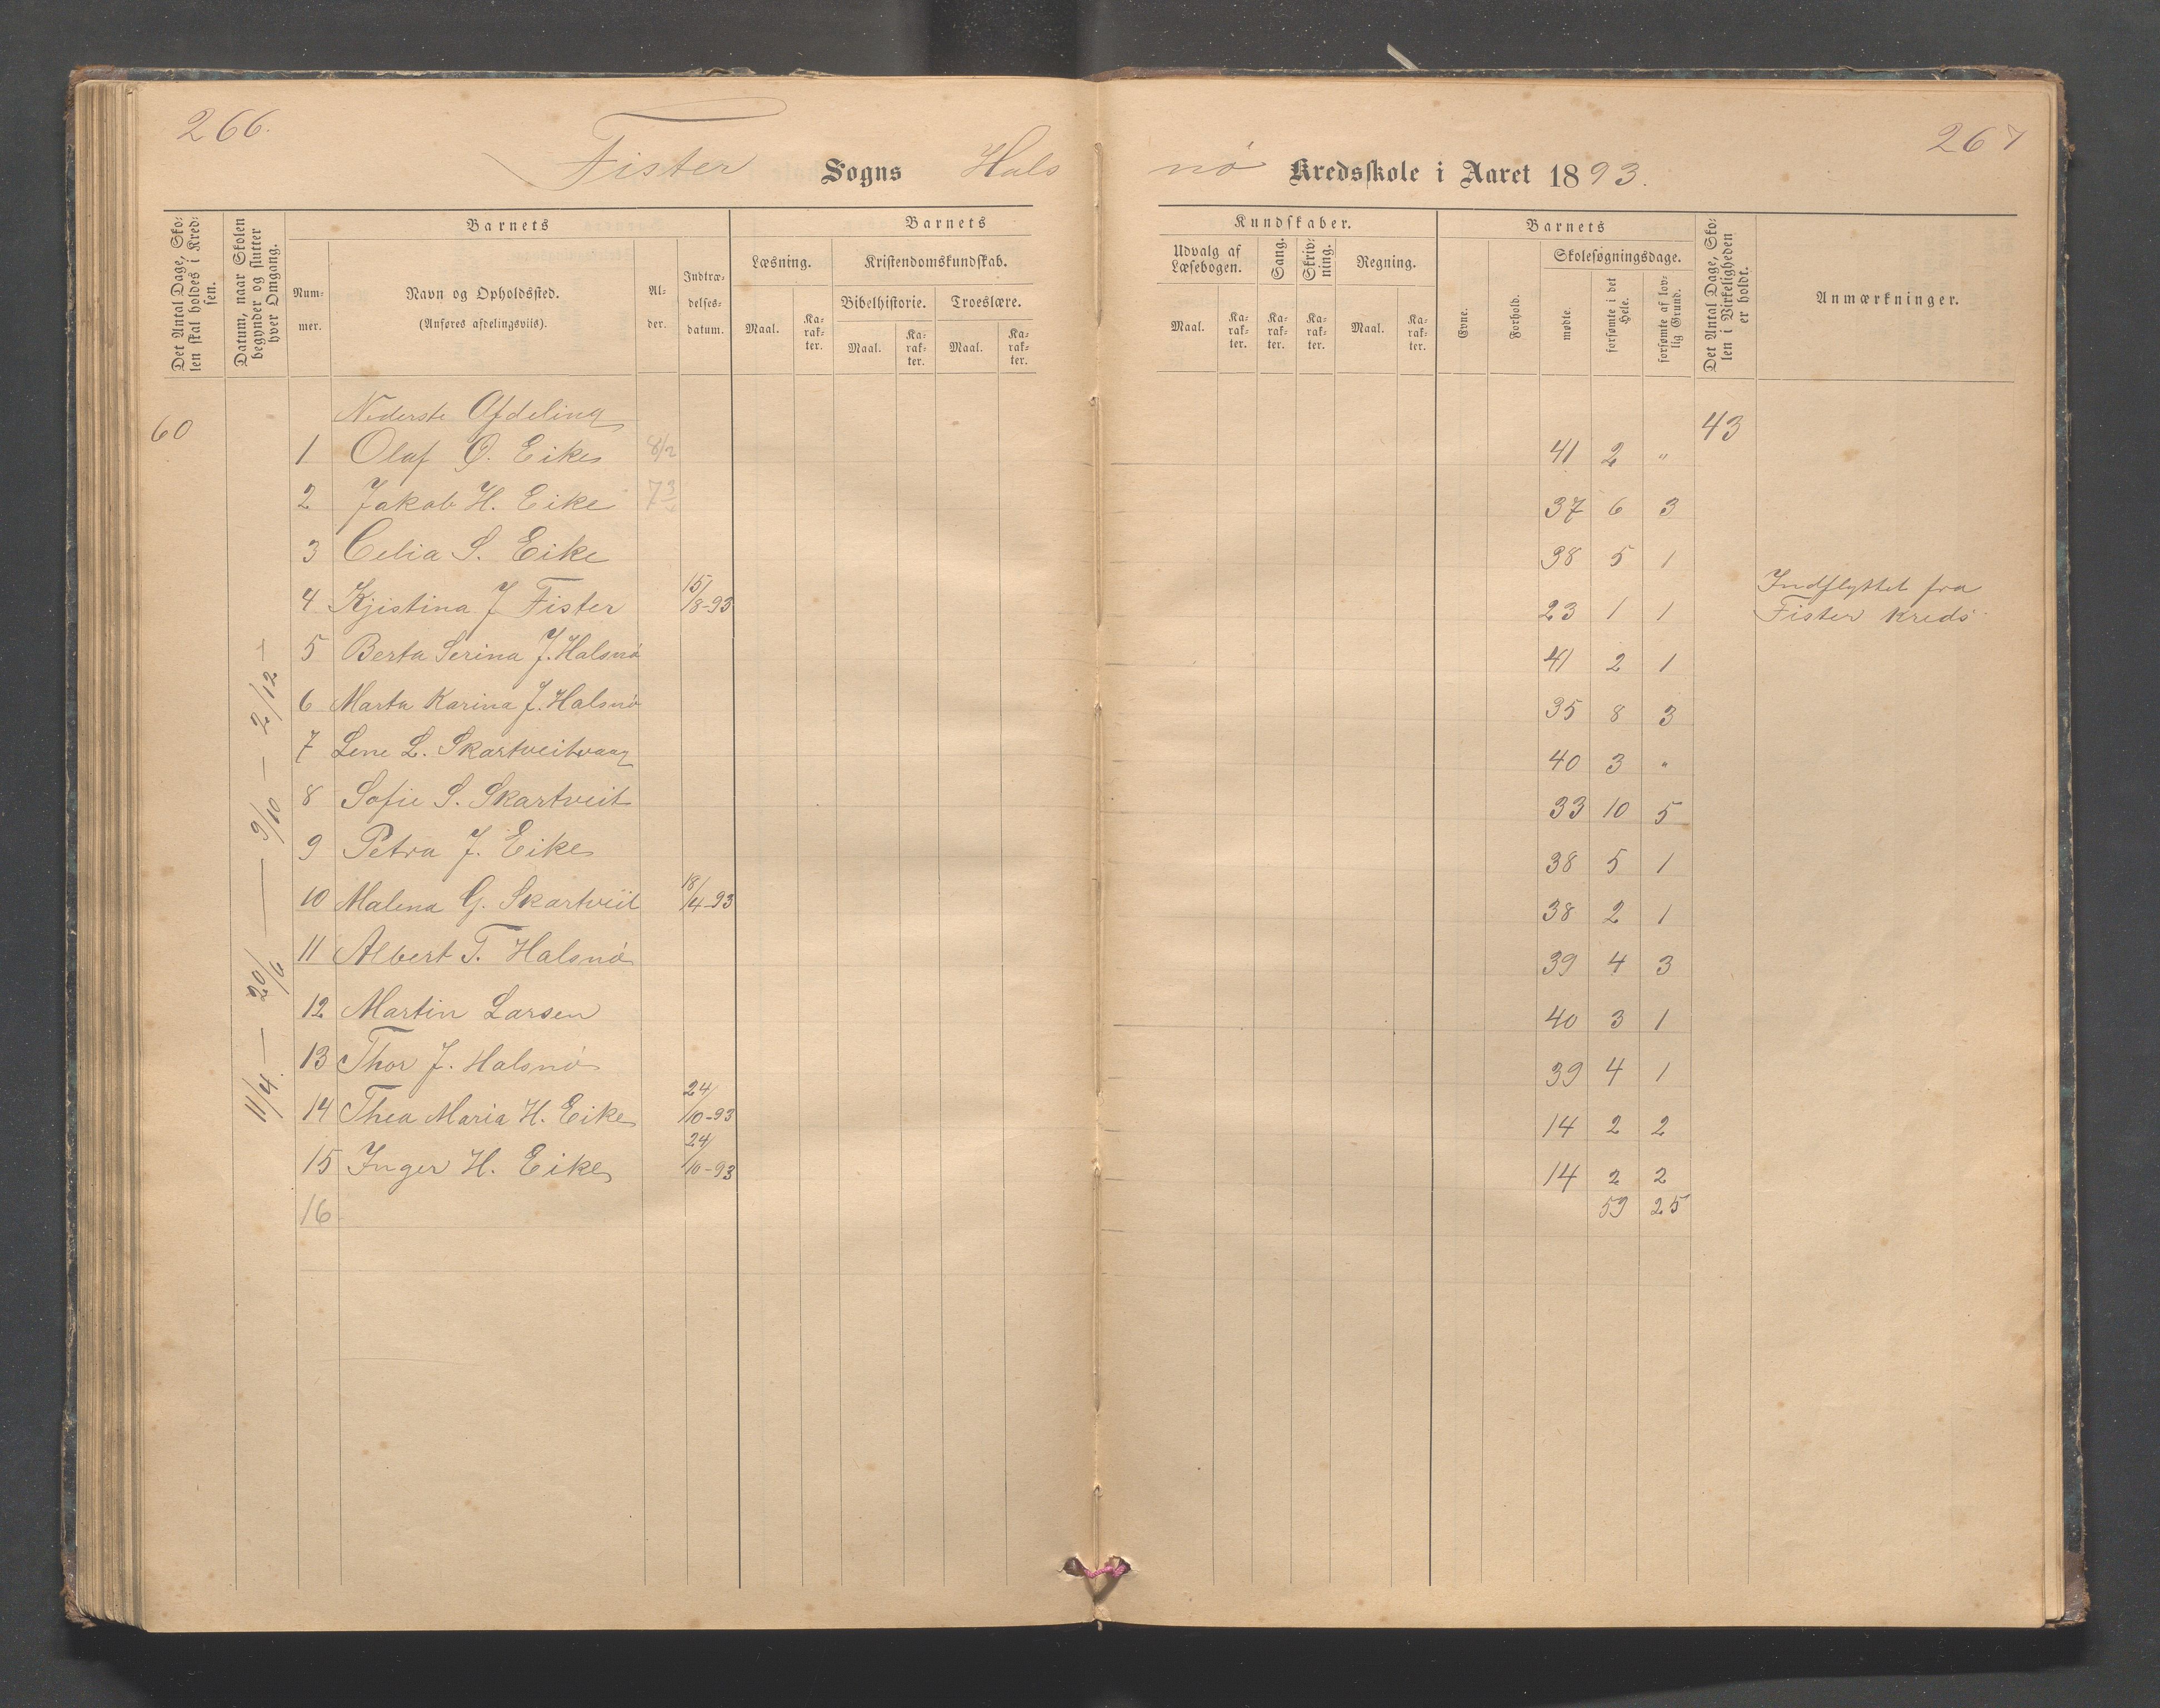 266.
267
Fister Sogns Halsnö Kredsskole i Aaret 1893.
Det Antal Dage, Skolen skal holdes i Kredsen.
Datum, naar Skolen begynder og slutter hver Omgang.
Barnets
Nummer.
Navn og Opholdssted.
(Anføres afdelingsviis).
Alder.
Indtrædelsesdatum.
Barnets
Læsning.
Maal.
Karakter.
Kristendomskundskab.
Bibelhistorie.
Maal.
Karakter.
Troeslære.
Maal.
Karakter.
Kundskaber.
Udvalg af Læsebogen.
Maal.
Karakter.
Sang.
Karakter.
Skrivning.
Karakter.
Regning.
Maal.
Karakter.
Barnets
Evne.
Forhold.
Skolesøgningsdage.
mødte.
forsømte i det Hele.
forsømte af lovlig Grund.
Det Antal Dage, Skolen i Virkeligheden er holdt.
Anmærkninger.
60
11/4 — 20/6 — 9/10 — 2/12 —
Nederste Afdeling
43
1 Olaf O. Eike 8/2 41 2 "
2 Jakob H. Eike 37 6 3
3 Celia S. Eike 38 5 1
4 Kjistina J Fister 15/8-93 23 1 1 Indflyttet fra
Fister kreds
5 Berta Serina J. Halsnö 41 2 1
6 Marta Karina J. Halsnö 35 8 3
7 Lene L. Skartveitvaag 40 3 "
8 Sofie S. Skartveit 33 10 5
9 Petra J. Eike 38 5 1
10 Malena G. Skartveit 18/4-93 38 2 1
11 Albert T. Halsnö 39 4 3
12 Martin Larsen 40 3 1
13 Thor J. Halsnö 39 4 1
14 Thea Maria H. Eike 24/10-93 14 2 2
15 Inger H. Eike 24/10-93 14 2 2
16
59 25